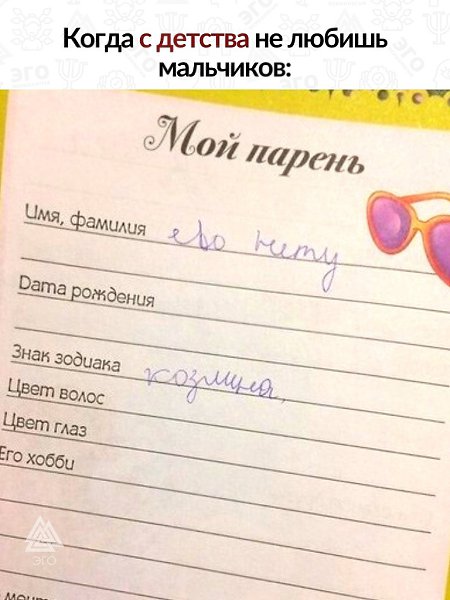 Когда с детства не любишь
мальчиков:
Мой парень
Имя, фамилия ево нету
Дата рождения
Знак зодиака козлина,
Цвет волос
Цвет глаз
Его хобби
ЭГО